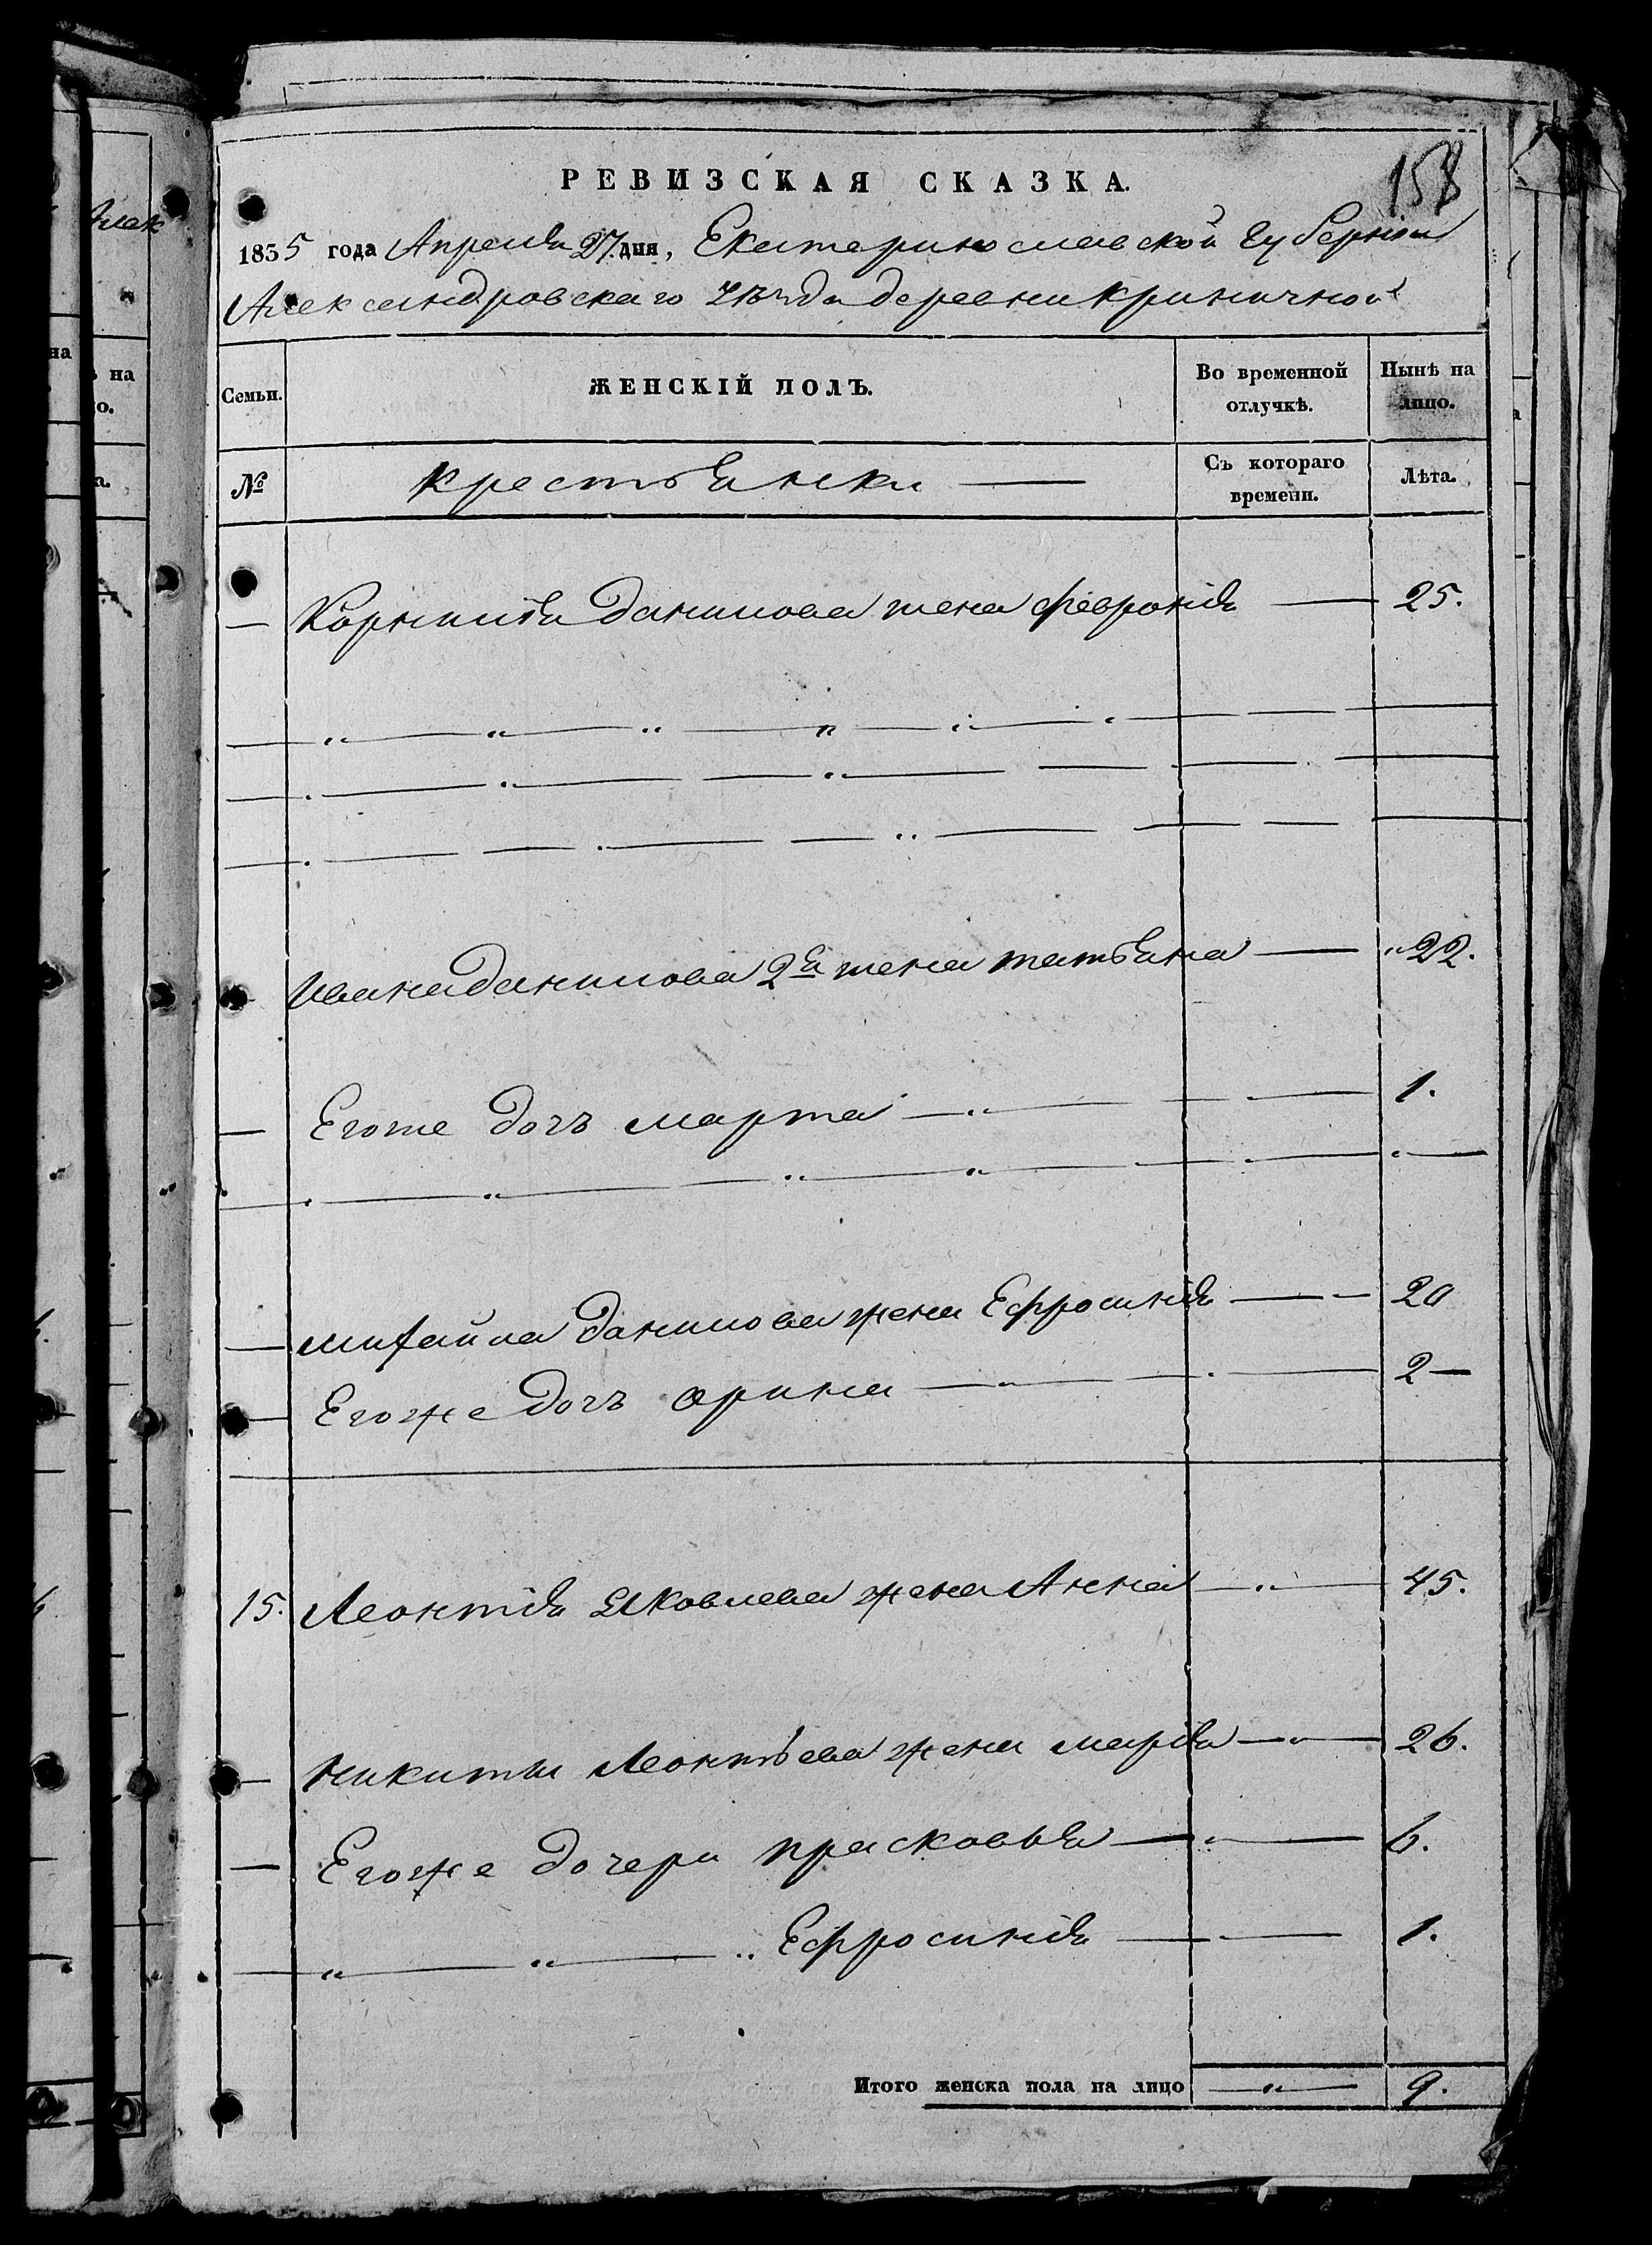 158
РЕВИЗСКАЯ СКАЗКА.
1835 года Апреля 27. дня, Екатеринославской губернии
Александровскаго уѣзда деревни криничной
Семьи.
ЖЕНСКІЙ ПОЛЪ.
Во временной отлучкѣ.
Нынѣ на лицо.
№
крестьянки
Съ котораго времени.
Лѣта.
Корнилія Данилова жена февронія 25.
Ивана Данилова 2я жена татьяна 22.
Егоже дочъ марта 1.
михайла Данилова жена Ефросинія 20
Егоже дочъ орина 2
15. Леонтія Яковлева жена Анна 45.
никиты Леонтьева жена марія 26.
Егоже дочери прасковья 6.
Ефросинія 1.
Итого женска пола на лицо 9.